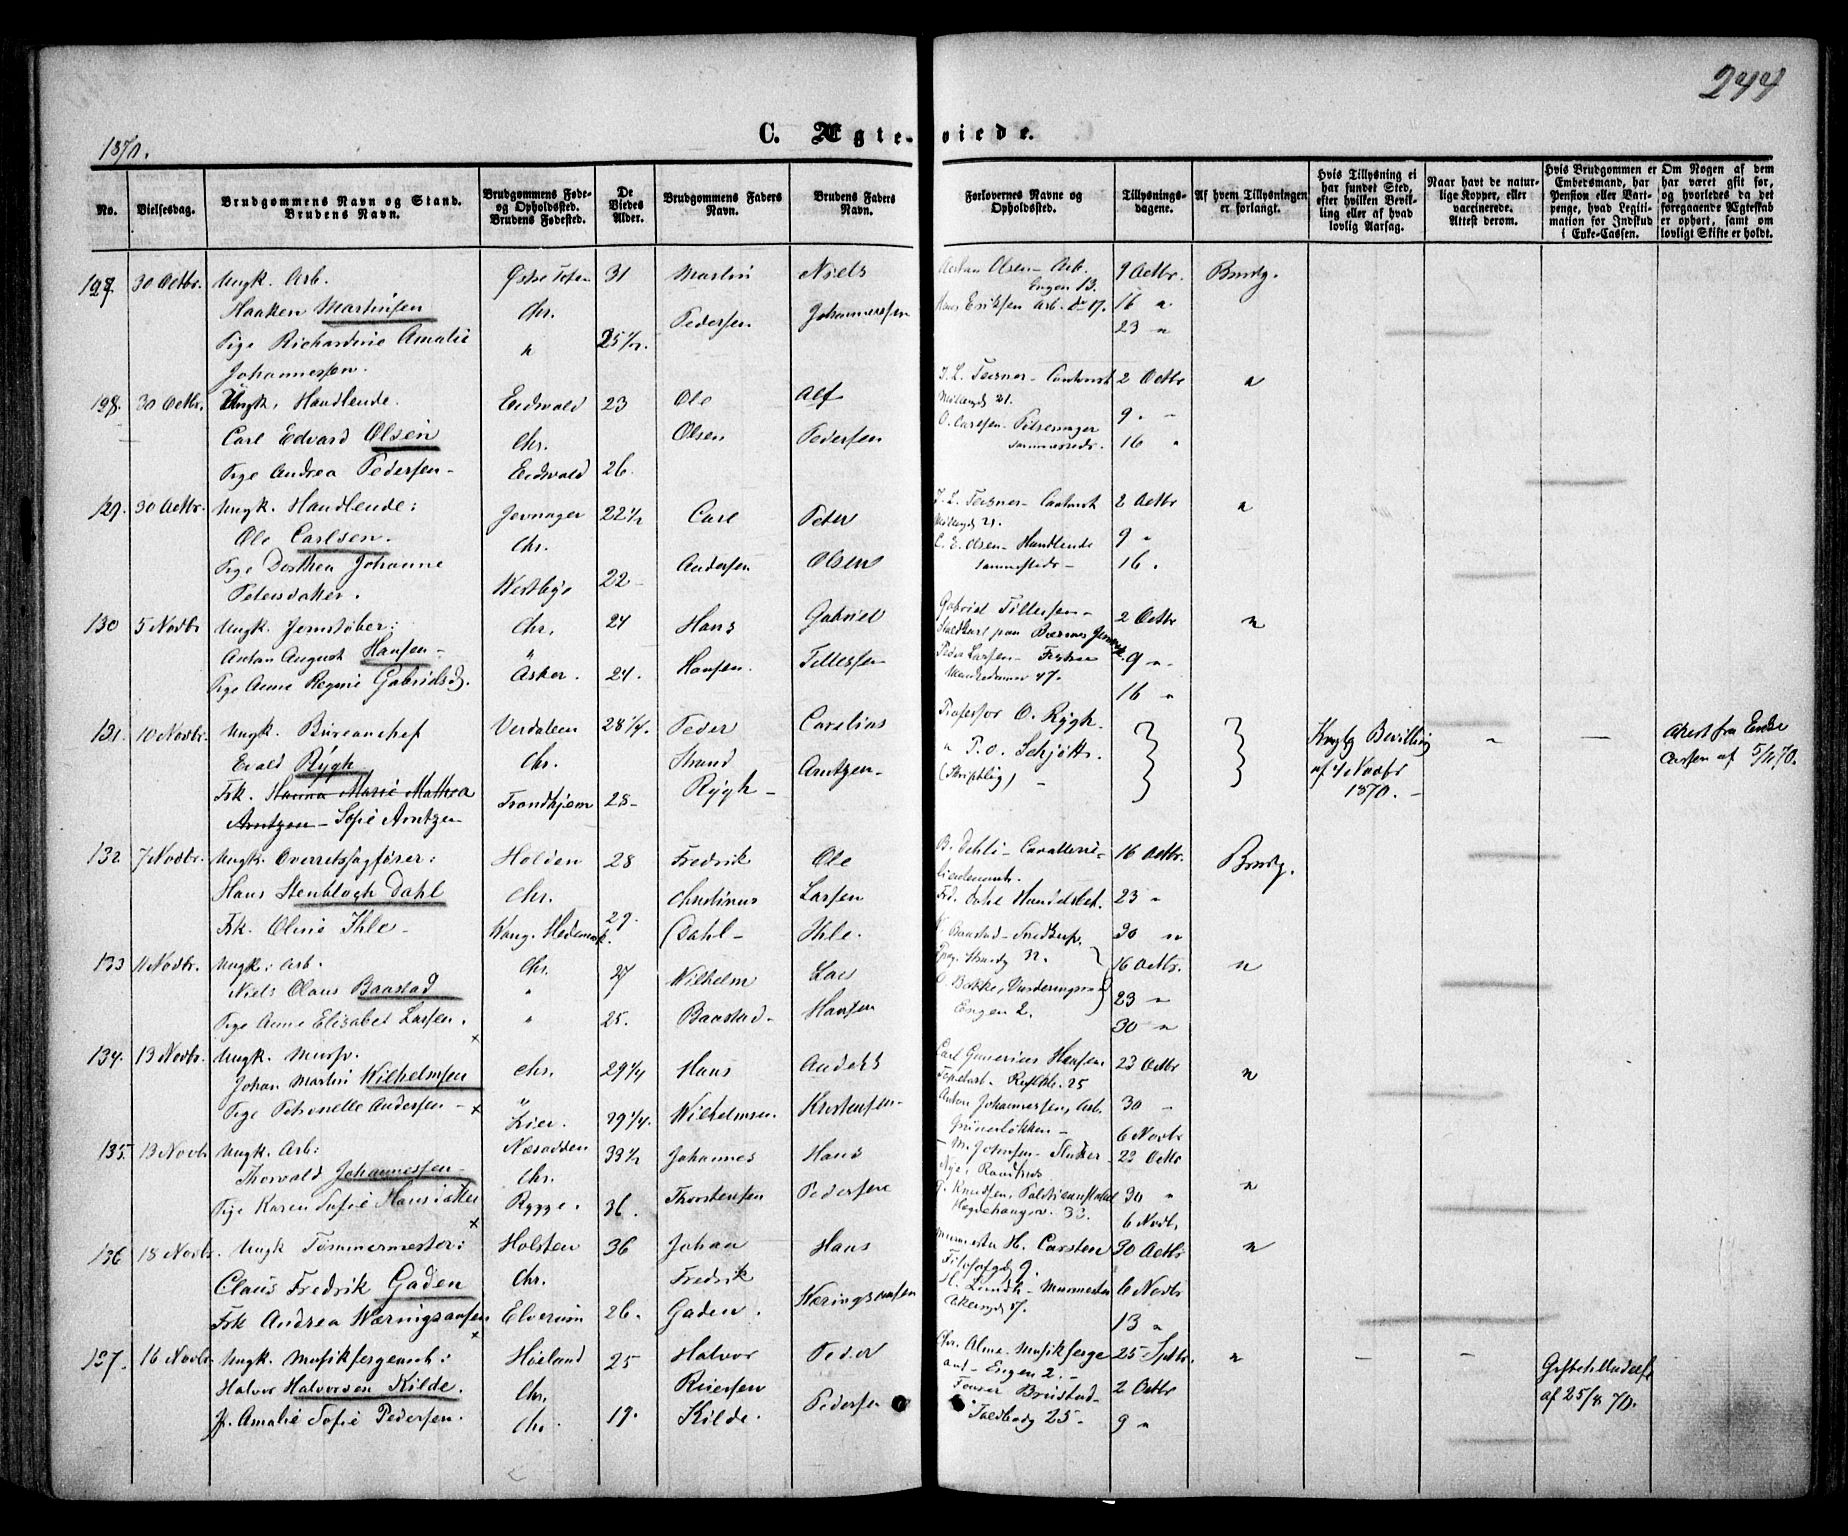 244
1870.
C. Ægte-viede.
No.
Vielsesdag.
Brudgommens Navn og Stand.
Brudens Navn.
Brudgommens Føde-
og Opholdssted.
Brudens Fødested.
De
Viedes
Alder.
Brudgommens Faders
Navn.
Brudens Faders
Navn.
Forlovernes Navne og
Opholdssted.
Tillysnings-
dagene.
Af hvem Tillysningen
er forlangt.
Hvis Tillysning ei
har fundet Sted,
efter hvilken Bevil-
ling eller af hvad
lovlig Aarsag.
Naar havt de natur-
lige Kopper, eller
vaccinerede.
Attest derom.
Hvis Brudgommen er
Embedsmand, har
Pension eller Vart-
penge, hvad Legiti-
mation for Indskud
i Enke-Cassen.
Om Nogen af dem
har været gift før,
og hvorledes da det
foregaaende Ægteskab
er ophørt, samt om
lovligt Skifte er holdt.
127. 30 Octbr. Ungk. Arb. Østre Toten 31 Martin Niels Olsen - Arb. 9 Octbr. Brudg.
Engen 13.
Haaken Martinsen Chr. Pedersen Johannessen Hans Eriksen Arb. do 17. 16 "
23 "
Pige Richardine Amalie " 25 1/2.
Johannessen.
128. 30 Octbr. Ungk. Handlende. Eidsvold 23 Ole Alf 2 Octbr "
Møllergd 21. 9. "
Carl Edvard Olsen Chr. Olsen Pedersen O. Carlsen 16 "
Pige Andrea Pedersen - Eidsvold 26.
129. 30 Octbr. Ungk. Handlende: Jevnager 22 1/2 Carl Peter 2 Octbr "
Møllergd 21.
Ole Carlsen. Chr. Andersen Olsen C. E. Olsen - Handlende 9 "
Pige Dorthea Johanne Vestbye 22 - sammesteds - 16.
Petersdatter.
130 5 Novbr Ungk. Jernstøber: Chr. 24 Hans Gabriel Gabriel Tillersen - 2 Octbr "
Anton August Hansen - " Hansen. Tillersen Peder Larsen - 9 "
Pige Anne Regine Gabrielsd. Asker. 24. 47. 16 "
131. 10 Novbr. Ungk. Bureauchef Verdalen 28 1/4. Peder Carelius Professor O. Rygh Kongelig Bevilling - — Attest fra Enke
Evald Rygh Chr. Strand Arntzen - " P. O. Schjøtt af 4 Novbr Cassen af 5/11 70.
Frk. Hanna Marie Mathea Trondhjem 28 - Rygh - (Skriftlig) - 1870. -
Arntzen - Sofie Arntzen
132 7 Novbr. Ungk. Overretssagfører: Holden 28 Fredrik Ole B. Dehli - Cavalleri- 16 Octbr. Brudg.
lieutenant.
Hans Stenbloch Dahl Chr. Christinus Larsen Fr. Dahl Handelsbet. 23 "
Frk. Oline Ihle - Vang. Hedemk. 29. Dahl - Ihle. 30 "
133 11 Novbr. Ungk. Arb. Chr. 27 Wilhelm Lars 16 Octbr. "
Niels Olaus Baastad " Baastad - Hansen O. Bakke, 23 "
Pige Anne Elisabet Larsen. " 25. Engen 2. 30 "
134. 13 Novbr. Ungk. Mursv. Chr. 29 1/4 Hans Anders Carl Gunerius Hansen 23 Octbr "
Johan Martin Wilhelmsen " Wilhelmsen Kristensen - Anton Johannessen, Arb. 30 "
Pige Petronelle Andersen - Lier. 29 1/4. Grünerløkken - 6 Novbr
135. 13 Novbr Ungk. Arb: Næsodden 33 1/2 Johannes Hans M. Johnsen - 22 Octbr "
Thorvald Johannessen - Chr. Thorstensen Pedersen 30 "
Pige Karen Sofie Hansdatter Rygge. 36. Hegdehaugsv. 33. 6 Novbr
136 18 Novbr. Ungk Tømmermester: Holsten 36 Johan Hans Murmester H. Carsten 30 Octbr "
Claus Fredrik Gaden Chr. Fredrik Næringsaasen Filosofgd 9. H. Lundh - Murmester 6 Novbr
Frk Andrea Næringsaasen Elverum 26. Gaden. Akersgd 57. 13 "
137. 16 Novbr. Ungk. Musiksergeant: Høland 25 Halvor Peder Chr. Alme - Musikserge 25 Sptbr. " - - Giftetilladelse
Halvor Halvorsen Kilde. Chr. Reiersen Pedersen ant - Engen 2. - 2 Octbr af 25/8 70.
P. Amalie Sofie Pedersen. Chr. 19. Kilde. Brustad - 25 - 9 "